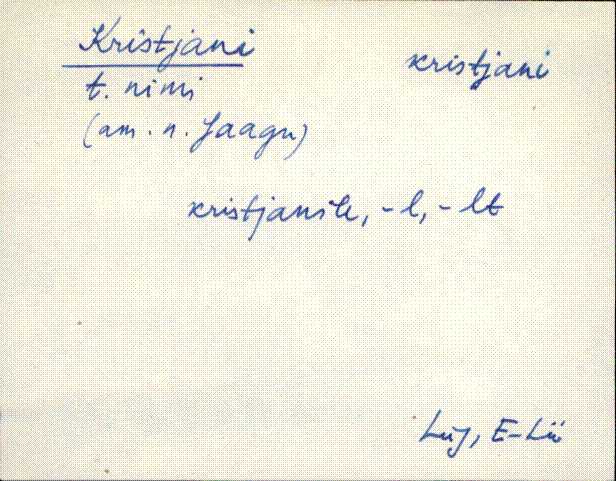 Kristjani kristjani
t. nimi
(am. n. Jaagu)
kristjanile, -l, -lt
Lüg, E-Lü